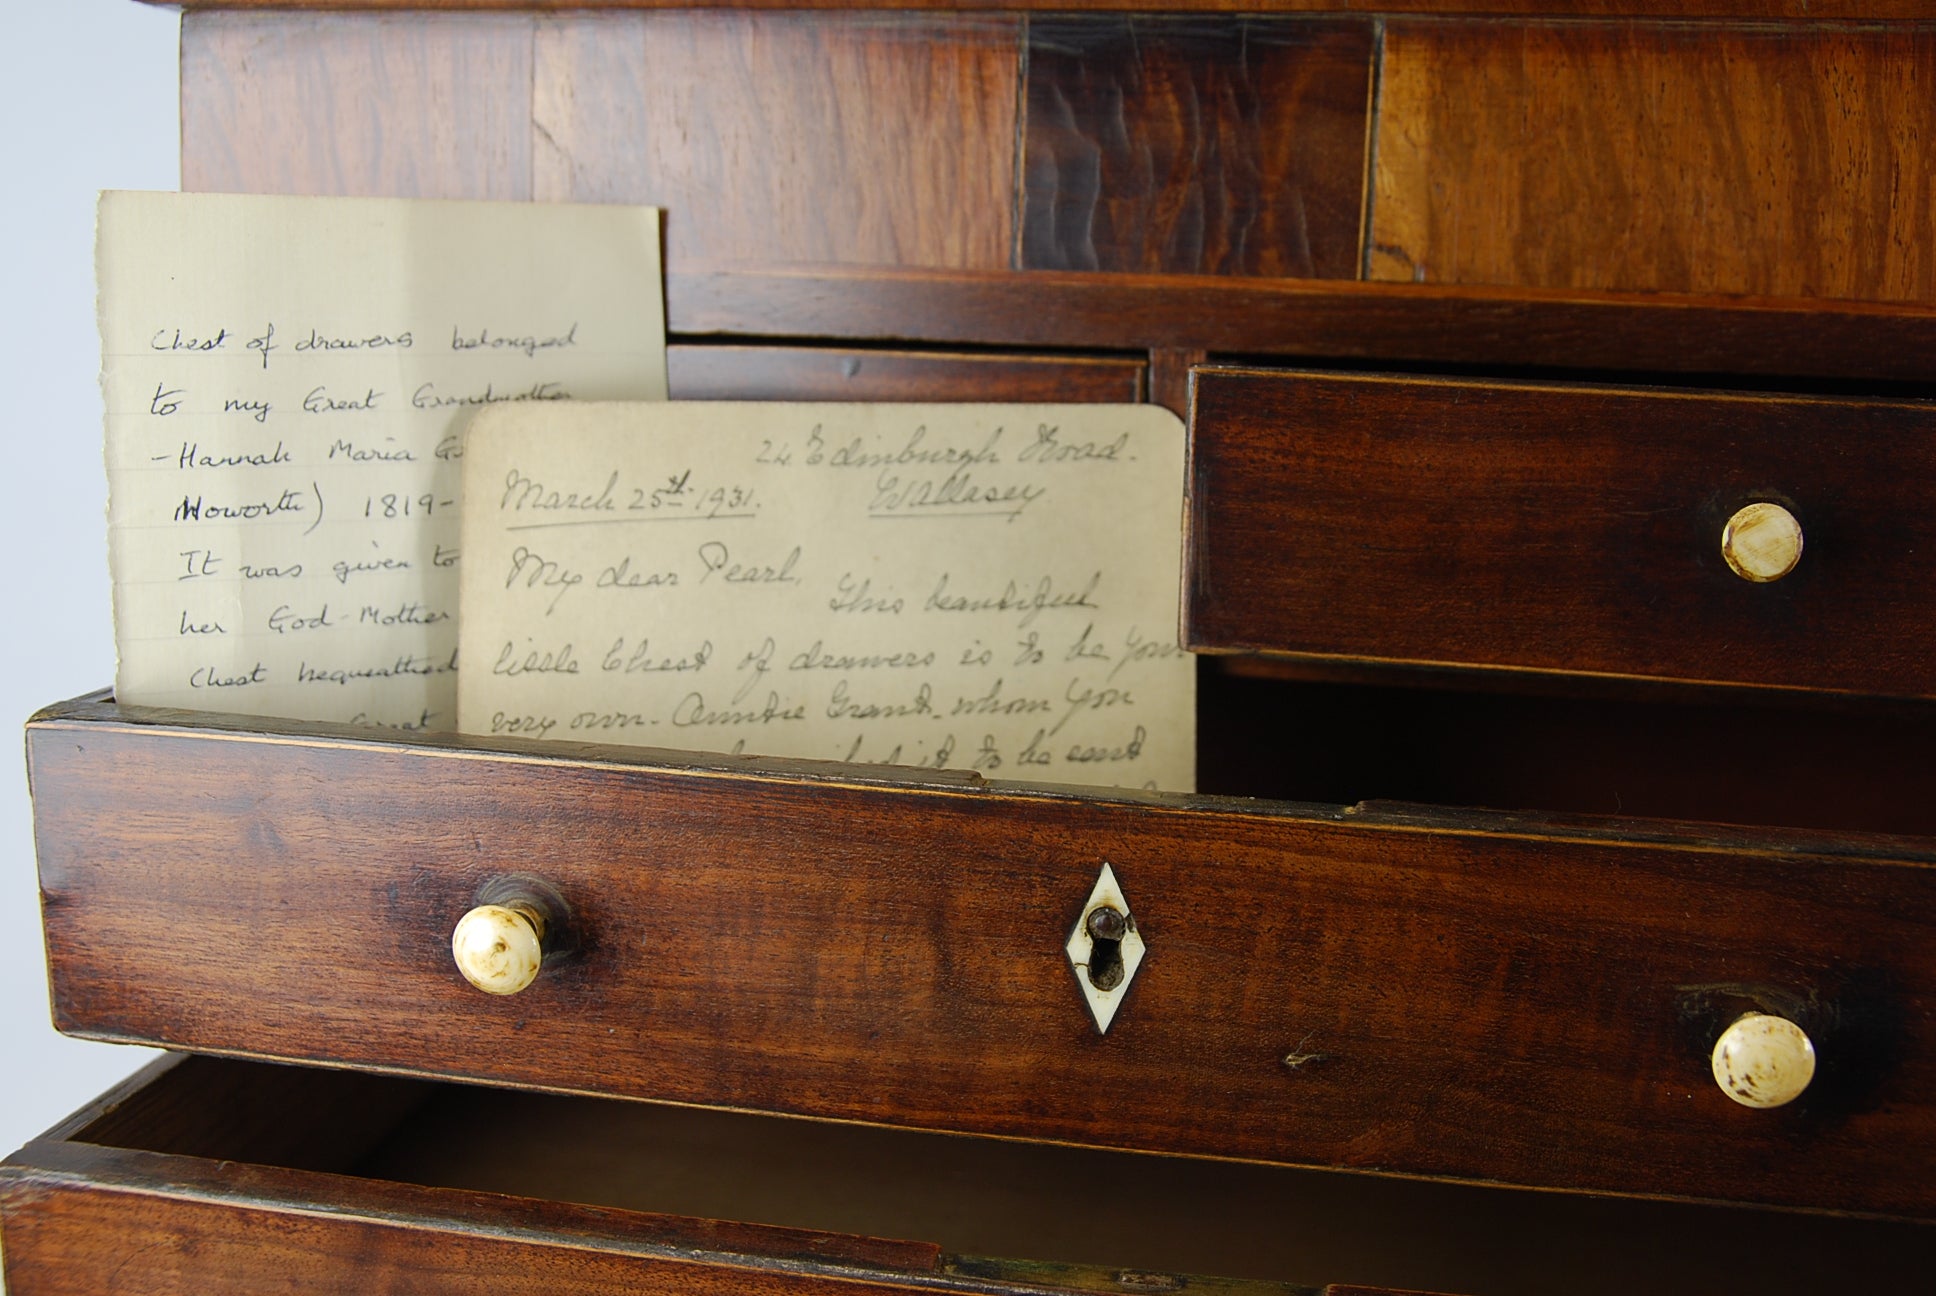 Chest of drawers belonged
to my Great Grandmother
- Hannah Maria
Howorth) 1819-
It was given to
her God-Mother
Chest bequeathed
Great
24 Edinburgh Road.
Wallasey
March 25th 1931.
My dear Pearl,
This beautiful
little Chest of drawers is to be your
very own. Auntie Grant - whom you
it to be sent